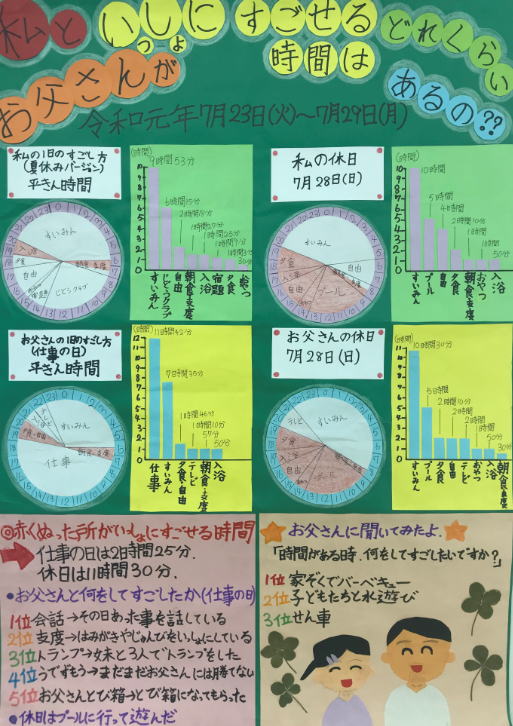 私と いっしょに すごせる どれくらい
お父さんが 時間は あるの??
令和元年7月23日(火)～7月29日(月)
私の1日のすごし方
(夏休みバージョン)
平きん時間
すいみん
入浴
夕食
自由
じどうクラブ
(時間)
9時間53分
30分
すいみん
じどうクラブ
自由
朝食・支度
入浴
宿題
夕食
おやつ
私の休日
7月28日(日)
すいみん
夕食
入浴
自由
プール
(時間)
10時間
5時間
4時間
2時間10分
1時間
50分
すいみん
プール
自由
夕食
朝食・支度
おやつ
入浴
お父さんの1日のすごし方
(仕事の日)
平きん時間
すいみん
夕食・自由
仕事
(時間)
11時間42分
1時間46分
1時間10分
57分
50分
仕事
すいみん
夕食・自由
テレビ
朝食・支度
入浴
お父さんの休日
7月28日(日)
テレビ
すいみん
夕食
入浴
自由
プール
(時間)
10時間30分
5時間
2時間10分
2時間
1時間
50分
30分
すいみん
プール
夕食
自由
テレビ
おやつ
入浴
朝食・支度
◎赤くぬった所がいっしょにすごせる時間
仕事の日は2時間25分.
休日は11時間30分.
●お父さんと何をしてすごしたか(仕事の日)
1位会話→その日あった事を話している
2位支度→はみがきやじゅんびをいっしょにしている
3位トランプ→妹と3人でトランプをした
4位うでずもう→まだまだお父さんには勝てない
5位お父さんとび箱→とび箱になってもらった
●休日はプールに行って遊んだ
お父さんに聞いてみたよ.
「時間がある時、何をしてすごしたいですか?」
1位 家ぞくでバーベキュー
2位 子どもたちと水遊び
3位 せん車